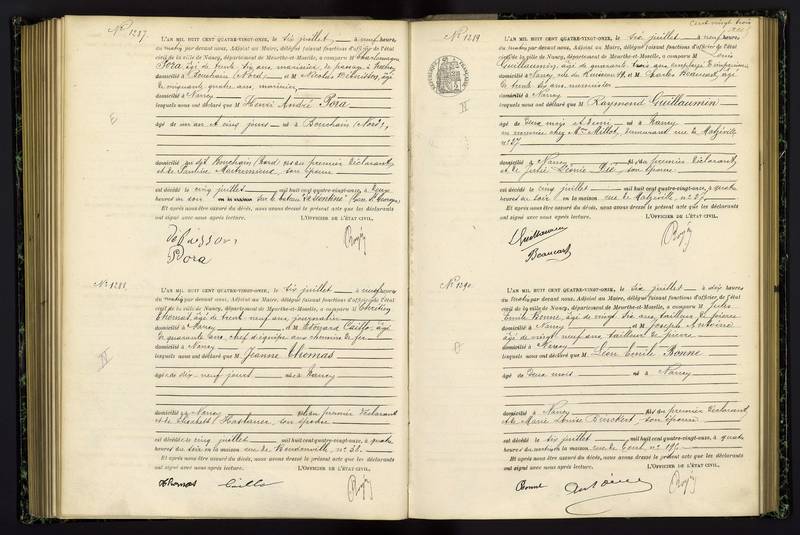 N° 1287.
L'AN MIL HUIT CENT QUATRE-VINGT-ONZE, le six juillet à neuf heures
du matin par devant nous, Adjoint au Maire, délégué faisant fonctions d'officier de l'état
civil de la ville de Nancy, département de Meurthe-et-Moselle, a comparu M
Pora, âgé de trente six ans, marinier, de passage à Nancy
domicilié à Bouchain (Nord), et M Nicolas
de cinquante quatre ans, marinier,
domicilié à Nancy
lesquels nous ont déclaré que M Henri André Pora
âgé de un an et cinq jours né à Bouchain (Nord),
domicilié au dit Bouchain (Nord) fils du premier déclarant
et de Pauline son épouse
est décédé le cinq juillet mil huit cent quatre-vingt-onze, à
heures du soir sur le bateau
Et après nous être assuré du décès, nous avons dressé le présent acte que les déclarants
ont signé avec nous après lecture. L'OFFICIER DE L'ÉTAT CIVIL,
Pora
N° 1288.
L'AN MIL HUIT CENT QUATRE-VINGT-ONZE, le six juillet à neuf heures
du matin par devant nous, Adjoint au Maire, délégué faisant fonctions d'officier de l'état
civil de la ville de Nancy, département de Meurthe-et-Moselle, a comparu M
Thomas, âgé de trente neuf ans, journalier
domicilié à Nancy et M Edouard Caillo, âgé
de quarante ans, chef d'équipe aux chemins de fer
domicilié à Nancy
lesquels nous ont déclaré que M Jeanne Thomas
âgé de dix neuf jours née à Nancy
domicilié à Nancy fille du premier déclarant
et de Elisabeth son épouse
est décédé le cinq juillet mil huit cent quatre-vingt-onze, à quatre
heures du soir en la maison rue de n° 38.
Et après nous être assuré du décès, nous avons dressé le présent acte que les déclarants
ont signé avec nous après lecture. L'OFFICIER DE L'ÉTAT CIVIL,
Thomas
Cent vingt trois
N° 1289
L'AN MIL HUIT CENT QUATRE-VINGT-ONZE, le six juillet à neuf heures
du matin par devant nous, Adjoint au Maire, délégué faisant fonctions d'officier de l'état
civil de la ville de Nancy, département de Meurthe-et-Moselle, a comparu M Louis
Guillaumin, âgé de quarante ans employé d'imprimerie
domicilié à Nancy, rue du Ruisseau et M Charles Beaucart, âgé
de trente six ans, menuisier
domicilié à Nancy
lesquels nous ont déclaré que M Raymond Guillaumin
âgé de deux mois et demi né à Nancy
en nourrice chez Mme Millot, demeurant rue de Malzéville
n° 37
domicilié à Nancy fils du premier déclarant
et de Julie Léonie son épouse
est décédé le cinq juillet mil huit cent quatre-vingt-onze, à quatre
heures du soir en la maison rue de Malzéville n° 37.
Et après nous être assuré du décès, nous avons dressé le présent acte que les déclarants
ont signé avec nous après lecture. L'OFFICIER DE L'ÉTAT CIVIL,
Guillaumin
Beaucart
N° 1290.
L'AN MIL HUIT CENT QUATRE-VINGT-ONZE, le six juillet à dix heures
du matin par devant nous, Adjoint au Maire, délégué faisant fonctions d'officier de l'état
civil de la ville de Nancy, département de Meurthe-et-Moselle, a comparu M Jules
Emile Bonne, âgé de vingt six ans, tailleur de pierre
domicilié à Nancy et M Joseph Antoine
âgé de vingt neuf ans tailleur de pierre
domicilié à Nancy
lesquels nous ont déclaré que M Léon Emile Bonne
âgé de deux mois né à Nancy
domicilié à Nancy fils du premier déclarant
et de Marie Louise son épouse
est décédé le six juillet mil huit cent quatre-vingt-onze, à quatre
heures du matin en la maison rue de Toul, n°
Et après nous être assuré du décès, nous avons dressé le présent acte que les déclarants
ont signé avec nous après lecture. L'OFFICIER DE L'ÉTAT CIVIL,
Bonne Antoine